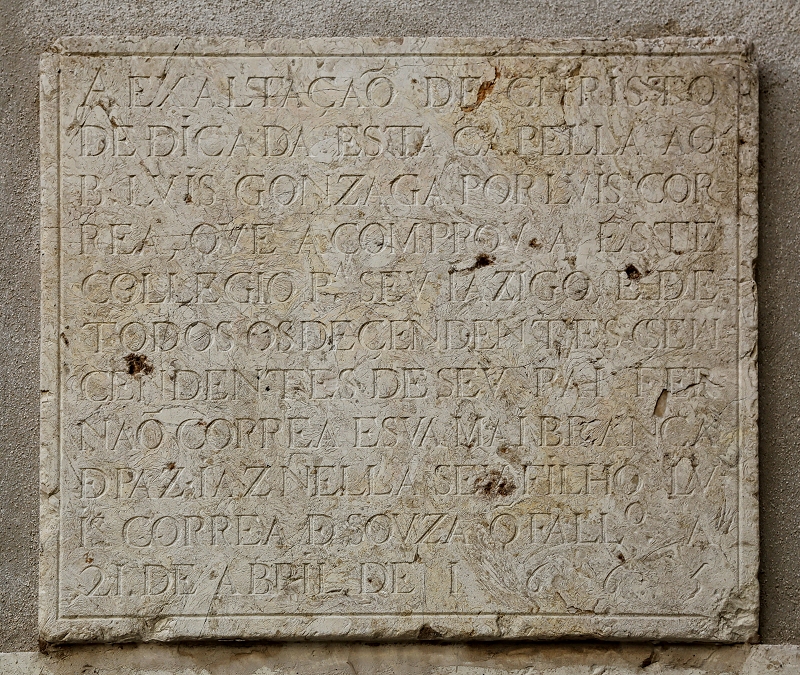 A EXALTACAÕ DE CHRISTO
DEDICADA ESTA CAPELLA AO
B. LVIS GONZAGA POR LVIS COR-
REA, QVE A COMPROV A ESTE
COLLEGIO PA SEV IAZIGO, E DE
TODOS OS DECENDENTES
CENDENTES DE SEV PAI FER
NAÕ CORREA E SVA MAI BRANCA
D PAZ. IAZ NELLA SEV FILHO LV
IS CORREA D SOVZA O FALLO A
21 DE ABRIL DE 1 6 6